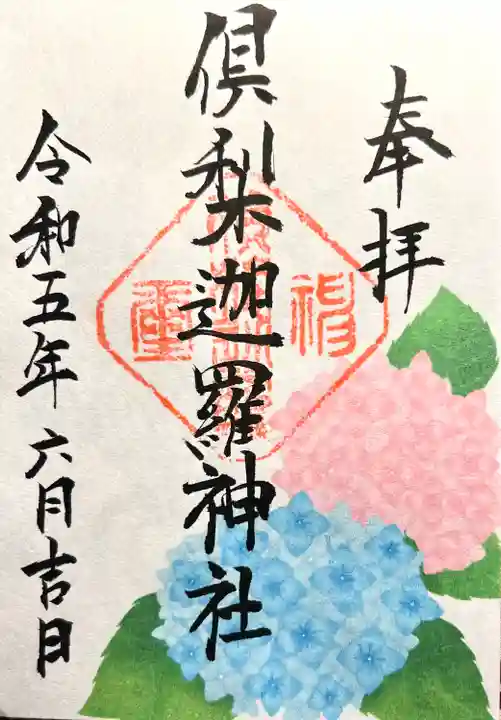 奉拝
倶梨迦羅神社
令和五年六月吉日